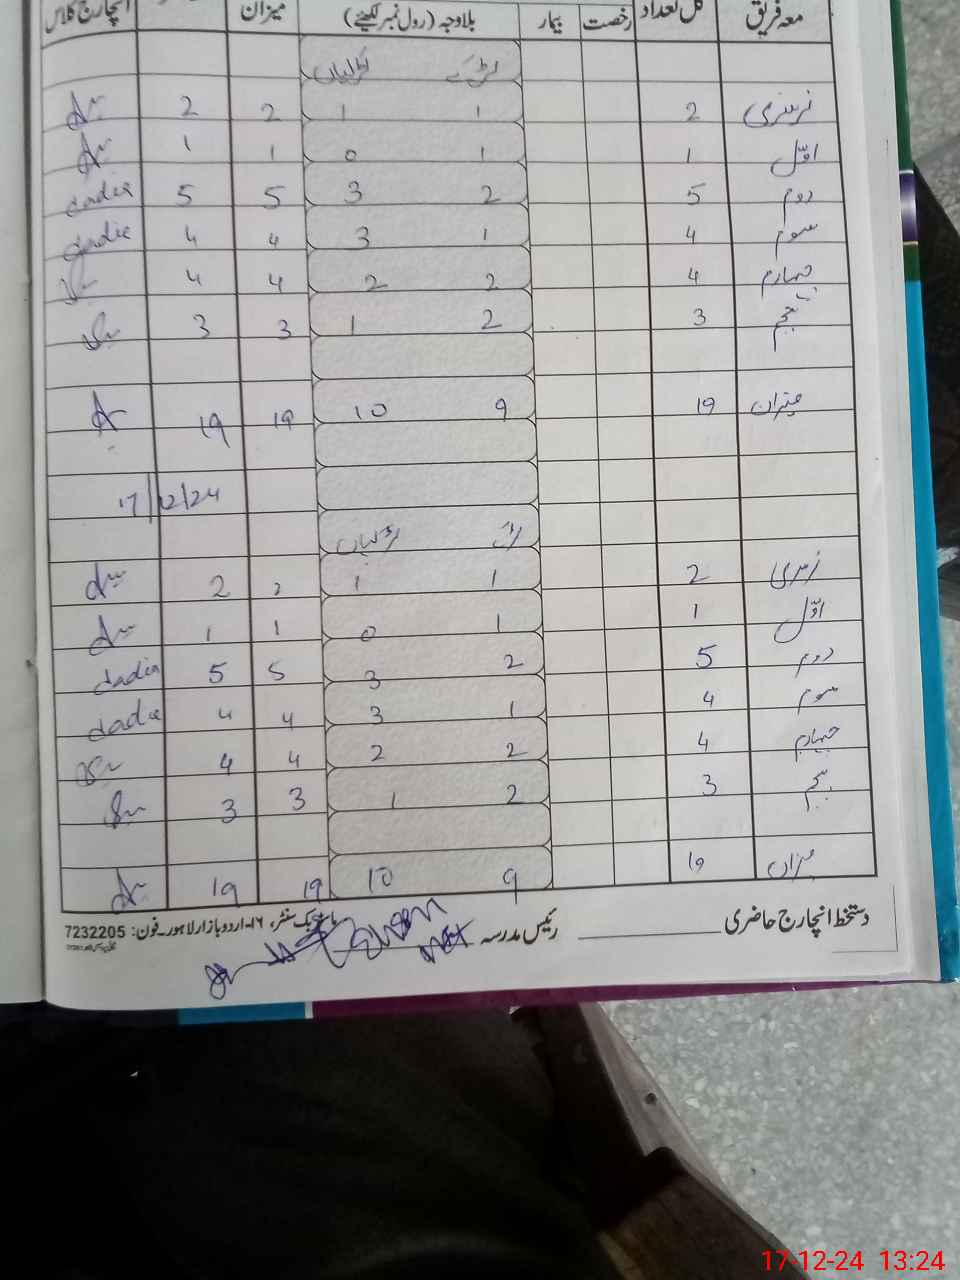 معہ فریق کل تعداد رخصت بیمار بلاوجہ (رول نمبر لکھیئے) میزان انچارج کلاس
لڑکے لڑکیاں
نرسری 2 1 1 2 2
اوّل 1 1 0 1 1
دوم 5 2 3 5 5 sadia
سوم 4 1 3 4 4 sadia
چہارم 4 2 2 4 4
پنجم 3 2 1 3 3
میزان 19 9 10 19 19
17/12/24
لڑکے لڑکیاں
نرسری 2 1 1 2 2
اوّل 1 1 0 1 1
دوم 5 2 3 5 5 sadia
سوم 4 1 3 4 4 sadia
چہارم 4 2 2 4 4
پنجم 3 2 1 3 3
میزان 19 9 10 19 19
دستخط انچارج حاضری رئیس مدرسہ
بک سنٹر، ۱۶-اردو بازار لاہور۔ فون: 7232205
17-12-24 13:24